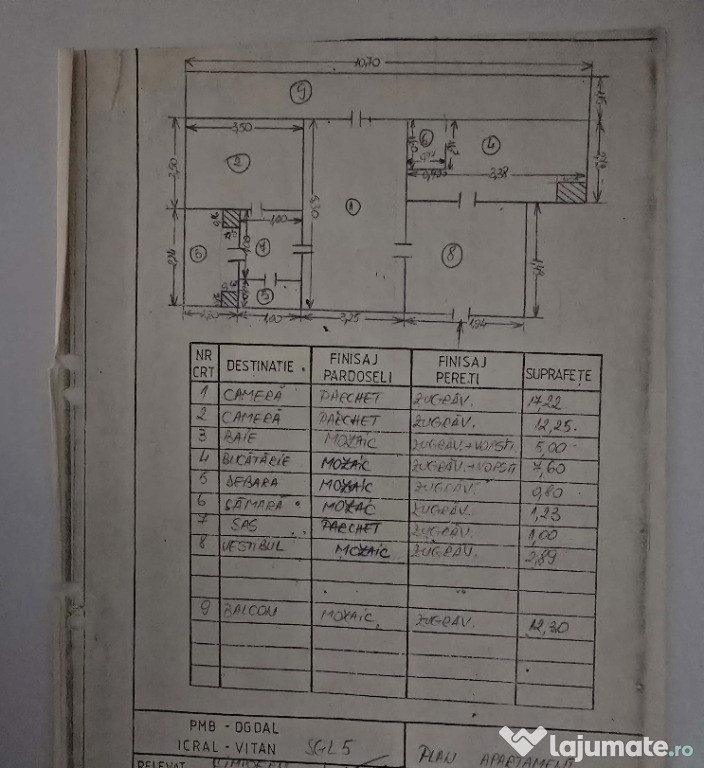 10,70
9
3,50
2
6
4
3,38
1
8
1,00
1,00
2,20
1,00
3,25
1,94
NR CRT DESTINATIE FINISAJ PARDOSELI FINISAJ PERETI SUPRAFEȚE
1 CAMERĂ PARCHET ZUGRĂV. 17,22
2 CAMERĂ PARCHET ZUGRĂV. 12,25
3 BAIE MOZAIC ZUGRĂV.+VOPSIT 5,00
4 BUCĂTĂRIE MOZAIC ZUGRĂV.+VOPSIT 7,60
5 DEBARA MOZAIC ZUGRĂV. 0,80
6 CĂMARĂ MOZAIC ZUGRĂV. 1,23
7 SAS PARCHET ZUGRĂV. 1,00
8 VESTIBUL MOZAIC ZUGRĂV. 2,89
9 BALCON MOZAIC ZUGRĂV. 12,30
PMB - DGDAL
ICRAL - VITAN SGL5
PLAN APARTAMENT
RELEVAT
lajumate.ro